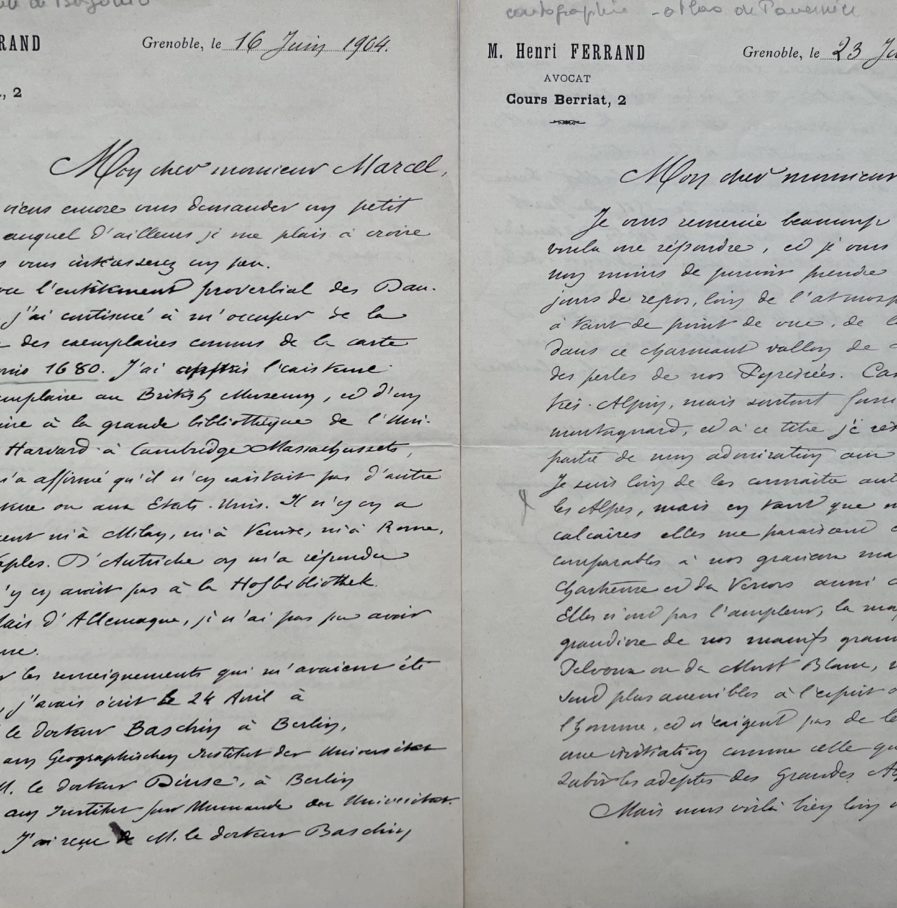 RRAND
Grenoble, le 16 Juin 1904.
, 2
Mon cher monsieur Marcel,
viens encore vous demander un petit
auquel d'ailleurs je me plais à croire
s vous intéresserez un peu.
l'entêtement proverbial des Dau-
j'ai continué à m'occuper de la
des exemplaires connus de la carte
1680. J'ai appris l'existence
emplaire au British Museum, et d'un
à la grande bibliothèque de l'Uni-
Harvard à Cambridge Massachussets,
m'a affirmé qu'il n'en existait pas d'autre
ou aux Etats-Unis. Il n'y en a
ni à Milan, ni à Venise, ni à Rome,
aples. D'Autriche on m'a répondu
n'y en avait pas à la Hofbibliothek.
d'Allemagne, je n'ai pas pu avoir
les renseignements qui m'avaient été
, j'avais écrit le 24 Avril à
le docteur Baschin à Berlin,
am Geographischen Institut der Universitat
M. le docteur à Berlin
am Institut Universitat.
J'ai reçu de M. le docteur Baschin
cartographie - atlas de
M. Henri FERRAND
AVOCAT
Cours Berriat, 2
Grenoble, le 23 Ju
Mon cher monsieur
Je vous remercie beaucoup
voulu me répondre, et je vous
non moins de pouvoir prendre
jours de repos, loin de l'atmosp
à tant de point de vue, de l
dans ce charmant vallon de
des perles de nos Pyrénées.
très-Alpin, mais surtout
montagnard, et à ce titre je
partie de mon admiration aux
Je suis loin de les connaitre aut
les Alpes, mais en tant que
calcaires elles me paraissent
comparables à nos gracieux ma
Chartreuse et du Vercors aussi
Elles n'ont pas l'ampleur, la ma
grandiose de nos massifs grani
Pelvoux ou du Mont Blanc,
sont plus accessibles à l'esprit
l'homme, et n'exigent pas de
une initiation comme celle qu
subir les adeptes des Grandes A
Mais nous voilà bien loin